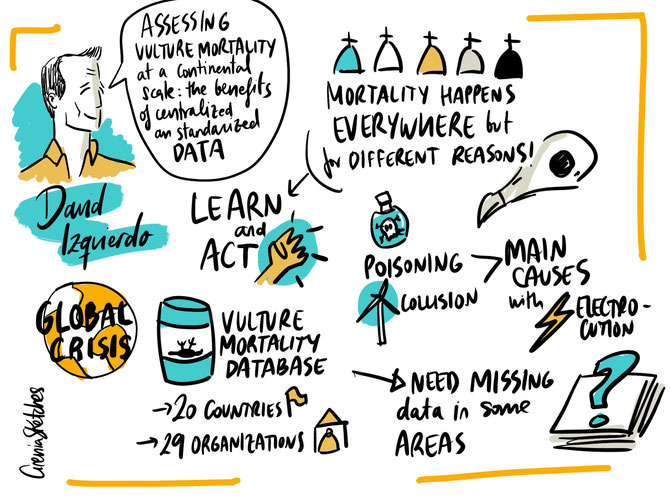 ASSESSING
VULTURE MORTALITY
at a Continental
scale: the benefits
of centralized
an standarized
DATA
David
Izquierdo
MORTALITY HAPPENS
EVERYWHERE but
for DIFFERENT REASONS!
LEARN
and
ACT
POISONING
COLLISION
MAIN
CAUSES
with
ELECTRO-
CUTION
GLOBAL
CRISIS
VULTURE
MORTALITY
DATABASE
→20 COUNTRIES
→29 ORGANIZATIONS
NEED MISSING
data in some
AREAS
?